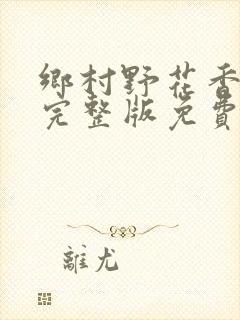 鄉村野花香
完整版免費
離尤